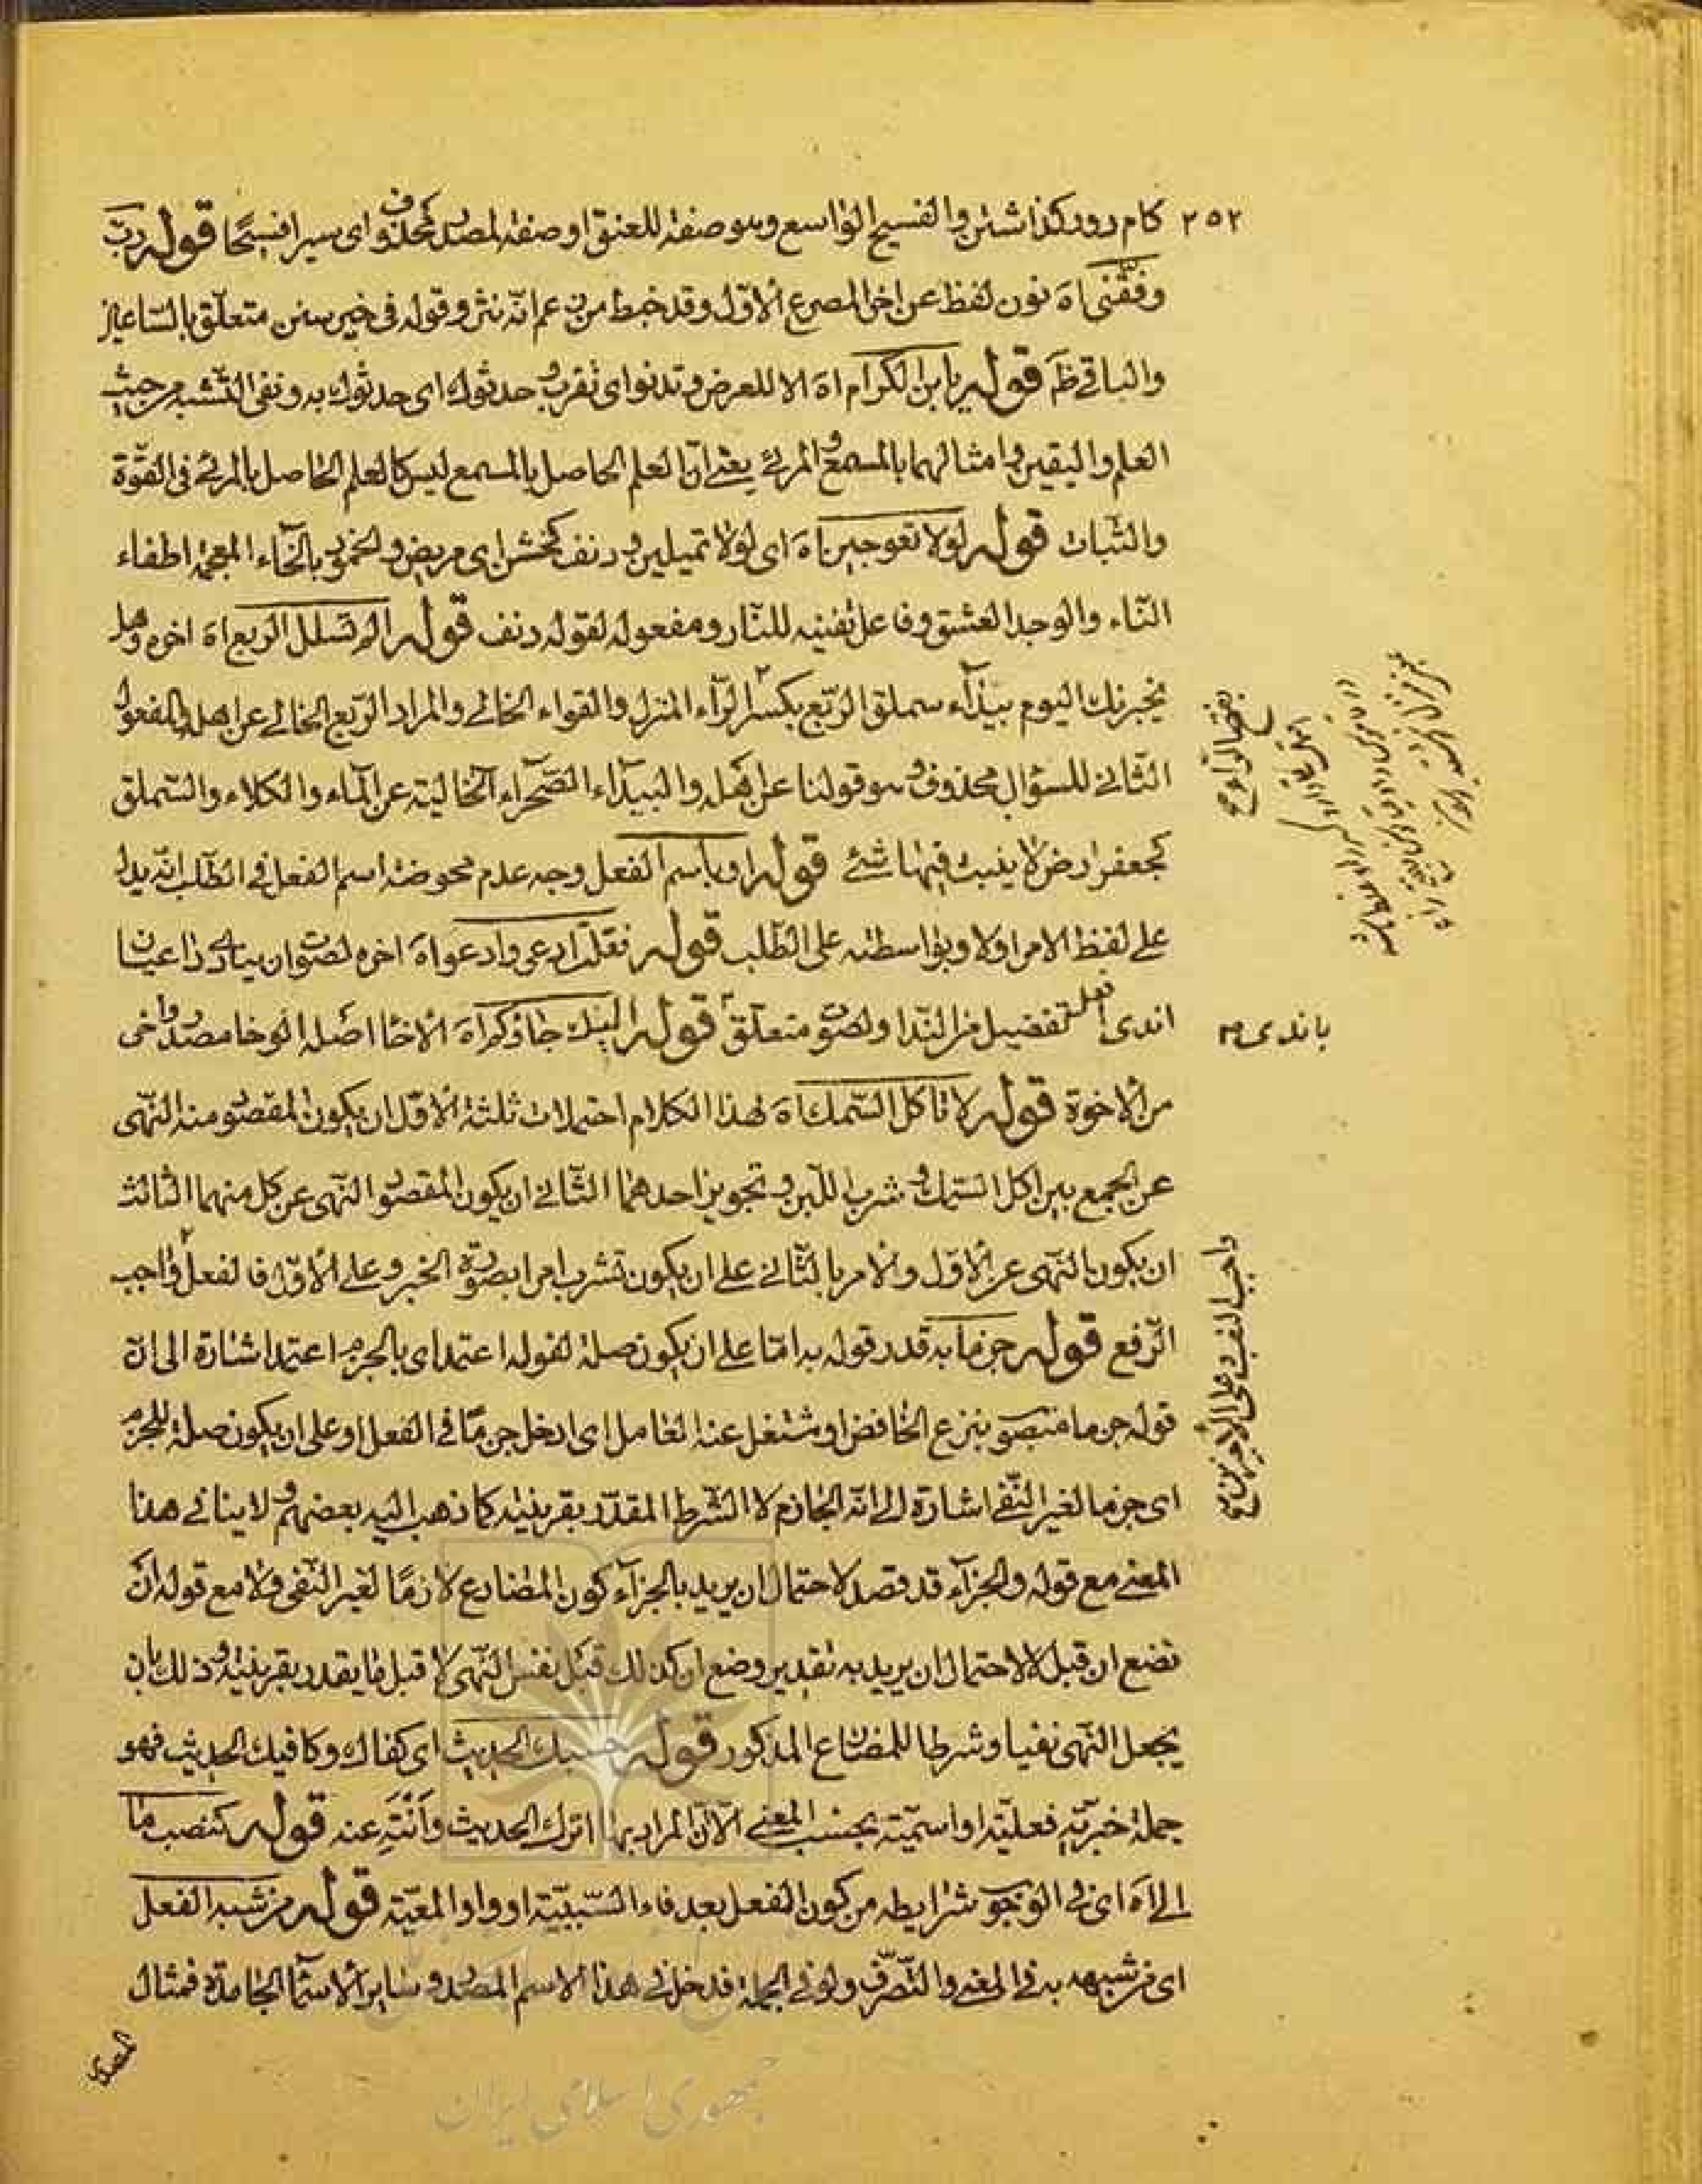 ٢٥٢ كام دور گذاشتن والفسيح الواسع وهو صفة للعنق او صفة لمصدر محذوف اى سيرا فسيحا قوله رب
وفقنى اه نون لفظ عن اخر المصرع الاول وقد خبط من زعم انه نثر وقوله فى خير سنن متعلق بالساعين
والباقى ظ قوله يابن الكرام اه الا للعرض وتدنو اى تقرب و حدثوك اى حدثوك به ونفى التشبه من حيث
العلم واليقين و امثالهما بالمسمع والمرئى يعنى ان العلم الحاصل بالمسمع ليس كالعلم الحاصل بالمرئى فى القوة
والثبات قوله لولا تعوجين اه اى لولا تميلين و دنف كخشن اى مريض والخمود بالخاء المعجمة اطفاء
النار والوجد العشق وفاعل تفنيه للنار ومفعوله لقوله دنف قوله الم تسئل الربع اه اخره وهل
يخبرنك اليوم بيداء سملق الربع بكسر الراء المنزل والقواء الخالى والمراد الربع الخالى عن اهله والمفعول
الثانى للسؤال محذوف و هو قولنا عن اهله والبيداء الصحراء الخالية عن الماء والكلاء والسملق
كجعفر ارض لا ينبت فيها شئ قوله او باسم الفعل وجه عدم محوضة اسم الفعل فى الطلب انه يدل
على لفظ الامر اولا وبواسطته على الطلب قوله فقلت ادعى وادعو اه اخره لصوت ان ينادى داعيان
اندى افعل تفضيل من الندا ولصوت متعلق قوله اليك جاذكرا اه الاخا اصله الوخا مصدر واخى
باندى م
من الاخوة قوله لا تاكل السمك اه لهذا الكلام احتمالات ثلثة الاول ان يكون المقصود منه النهى
عن الجمع بين اكل السمك و شرب اللبن و تجويز احدهما الثانى ان يكون المقصود النهى عن كل منهما الثالث
ان يكون النهى عن الاول والامر بالثانى على ان يكون تشرب امرا بصورة الخبر وعلى الاول فالفعل واجب
واجب النصب وعلى الاخيرين م
الرفع قوله جزما به قدر قوله به اما على ان يكون صلة لقوله اعتمد اى بالجزم اعتمد اشارة الى ان
قوله جزما منصوب بنزع الخافض او مشتغل عنه العامل اى ادخل جزما فى الفعل او على ان يكون صلة للجزم
اى جزما لغير النفى اشارة الى انه الجازم لا الشرط المقدر بقرينة كما ذهب اليه بعضهم و لا ينافى هذا
المعنى مع قوله والجزاء قد قصد لاحتمال ان يريد بالجزاء كون المضارع لازما لغير النفى ولا مع قوله ان
تضع ان قبل لا لاحتمال ان يريد به تقدير وضع ان كذلك قبل نفس النهى لا قبل ما يقدر بقرينة و ذلك بان
يجعل النهى نفيا وشرطا للمضارع المذكور قوله حسبك الحديث اى كفاك وكافيك الحديث فهو
جملة خبرية فعلية او اسمية بحسب المعنى الا ان المراد بها اترك الحديث وانته عنه قوله كنصب ما
الى اه اى فى الوجوب شرايطه من كون الفعل بعد فاء السببية او واو المعية قوله من شبه الفعل
اى من شبهه به فى المعنى والتصرف ولو فى الجملة فدخل فى هذا الاسم المصدر و ساير الاسماء الجامدة فمثال
المصدر
جمهوری اسلامی ایران